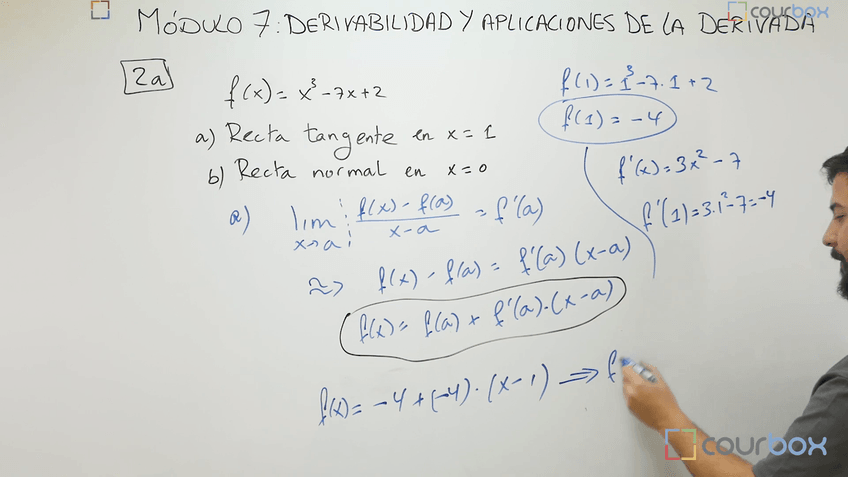 MÓDULO 7: DERIVABILIDAD Y APLICACIONES DE LA DERIVADA
courbox
2a
f(x) = x³ - 7x + 2
a) Recta tangente en x = 1
b) Recta normal en x = 0
a) lim x→a (f(x) - f(a))/(x - a) = f'(a)
≈> f(x) - f(a) = f'(a) (x-a)
f(x) = f(a) + f'(a)·(x-a)
f(x) = -4 + (-4)·(x-1) ⇒ f
f(1) = 1³ - 7·1 + 2
f(1) = -4
f'(x) = 3x² - 7
f'(1) = 3·1² - 7 = -4
courbox